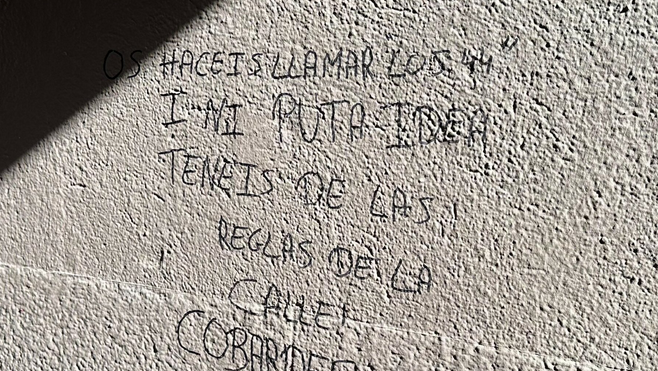 OS HACEIS LLAMAR LOS "44"
I NI PUTA IDEA
TENEIS DE LAS
REGLAS DE LA
CALLE!